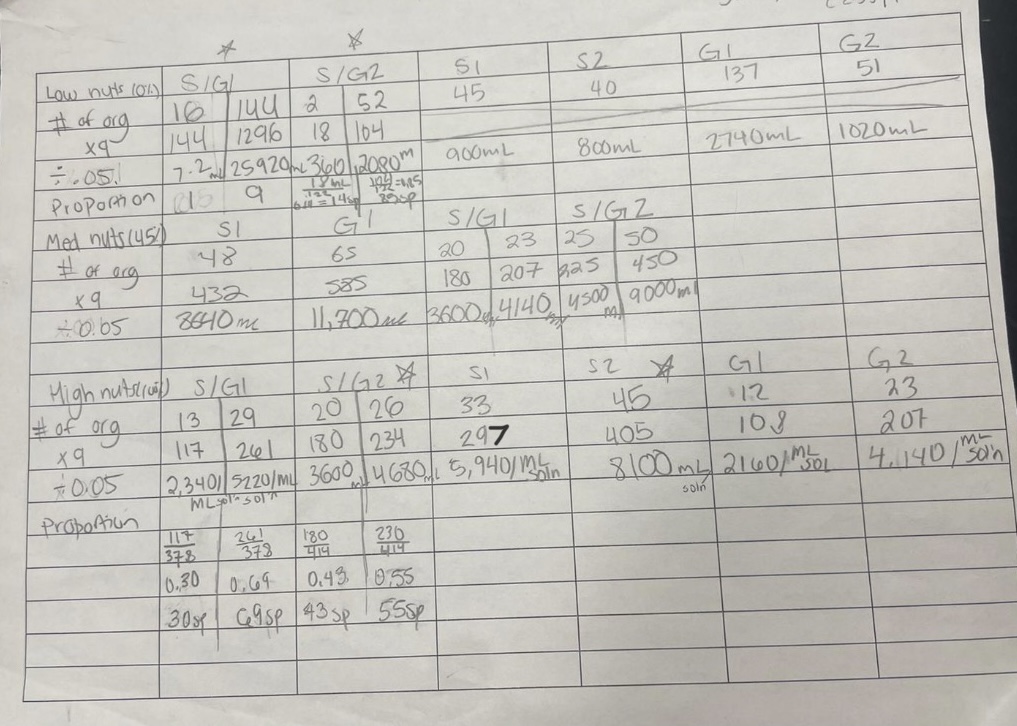 S1 S2 G1 G2
Low nuts (0%) S/G1 S/G2 45 40 137 51
# of org 16 144 2 52
x9 144 1296 18 104
÷.05. 7.2 mL 25920 mL 360 2080 m 900mL 800mL 2740mL 1020mL
Proportion 1 9 = 14sp
Med nuts (45%) S1 G1 S/G1 S/G2
# of org 48 65 20 23 25 50
x9 432 585 180 207 225 450
÷0.05 8640 mL 11,700 mL 3600 4140 4500 mL 9000ml
High nuts S/G1 S/G2 S1 S2 G1 G2
# of org 13 29 20 26 33 45 12 23
x9 117 261 180 234 297 405 108 207
÷0.05 2,340/ 5220/mL 3600 mL 4680 mL 5,940/mL soln 8100 mL soln 2160/mL sol 4,140/mL soln
ML soln soln
Proportion
117/378 261/378 180/414 230/414
0.30 0.69 0.43 0.55
30sp 69sp 43sp 55sp